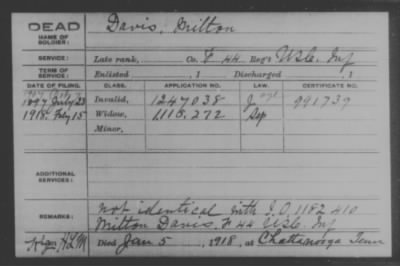 DEAD
NAME OF
SOLDIER:
Davis, Milton
SERVICE:
Late rank, Co. F 44 Reg't U.S.C. Inf
TERM OF
SERVICE:
Enlisted , 1 Discharged , 1
DATE OF FILING. CLASS. APPLICATION NO. LAW. CERTIFICATE NO.
1897 July 23 Invalid, 1247038 J 991739
1918 Feby 15 Widow, 1,118,272 Sep
Minor,
ADDITIONAL
SERVICES:
REMARKS:
Not identical with I.O. 1182410
Milton Davis. F 44 U.S.C. Inf
Died Jan 5, 1918, at Chattanooga Tenn